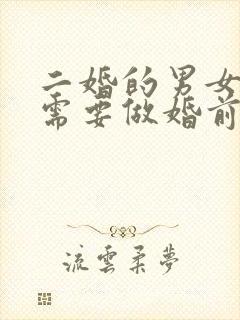 二婚的男女
需要做婚前
流雲柔夢